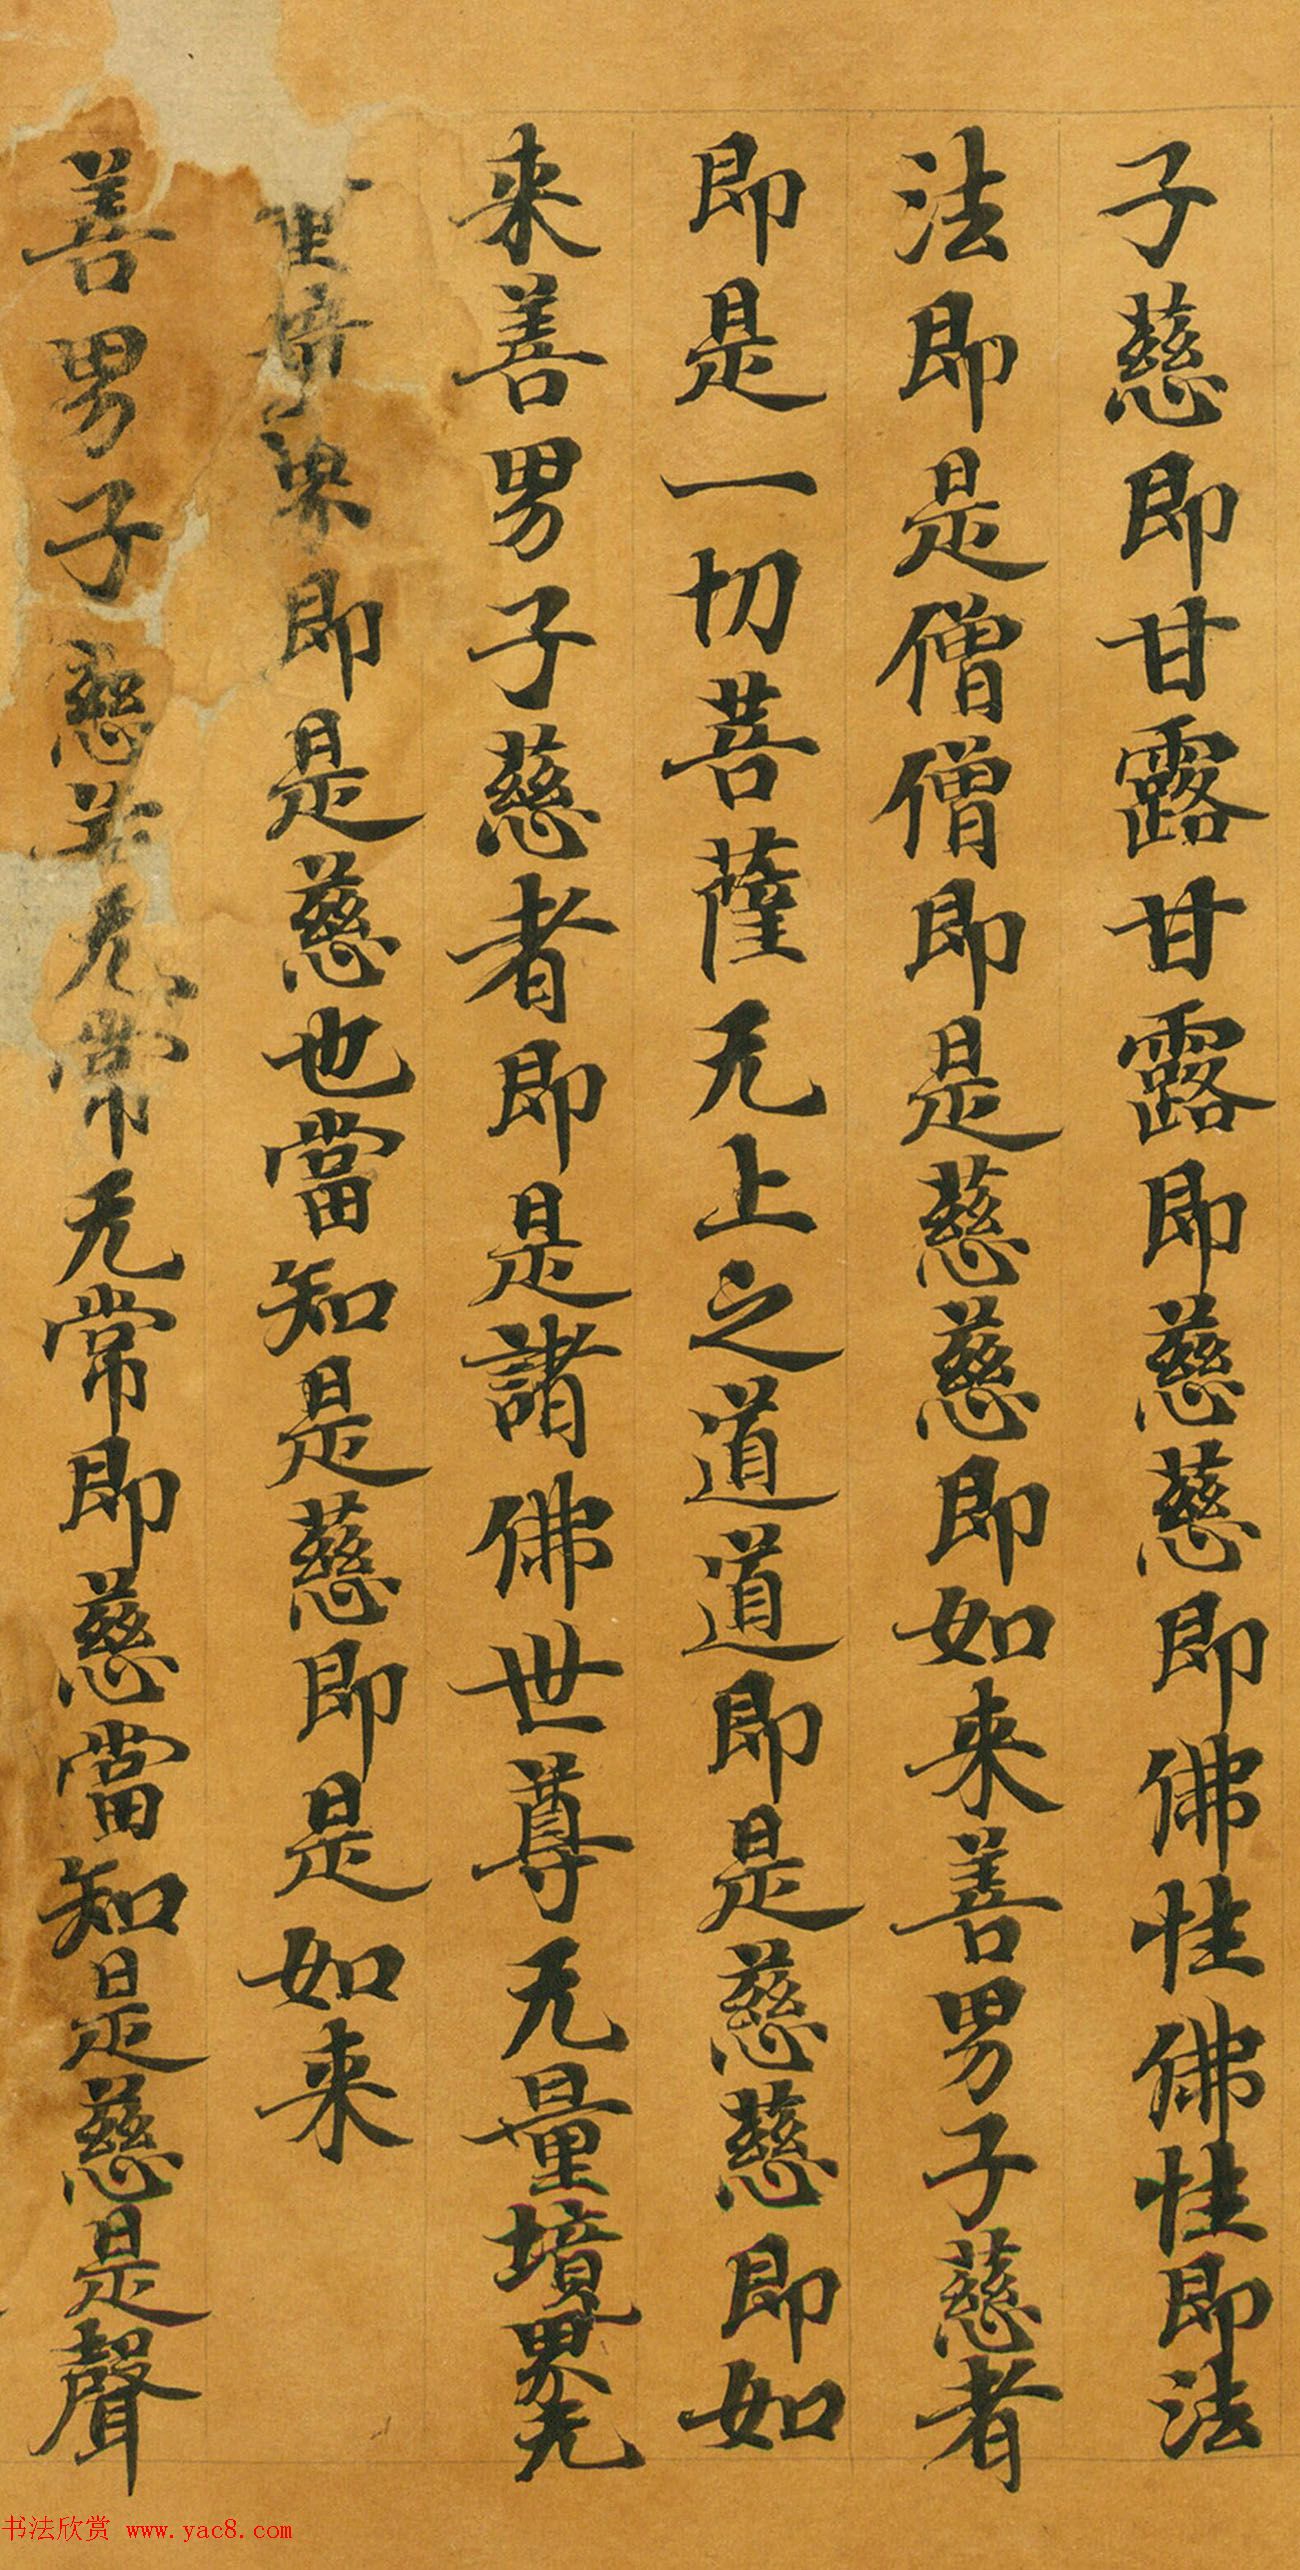 子慈即甘露甘露即慈慈即佛性佛性即法
法即是僧僧即是慈慈即如来善男子慈者
即是一切菩薩无上之道道即是慈慈即如
来善男子慈者即是諸佛世尊无量境界无
量境界即是慈也當知是慈即是如来
善男子慈若无常无常即慈當知是慈是聲
书法欣赏 www.yac8.com